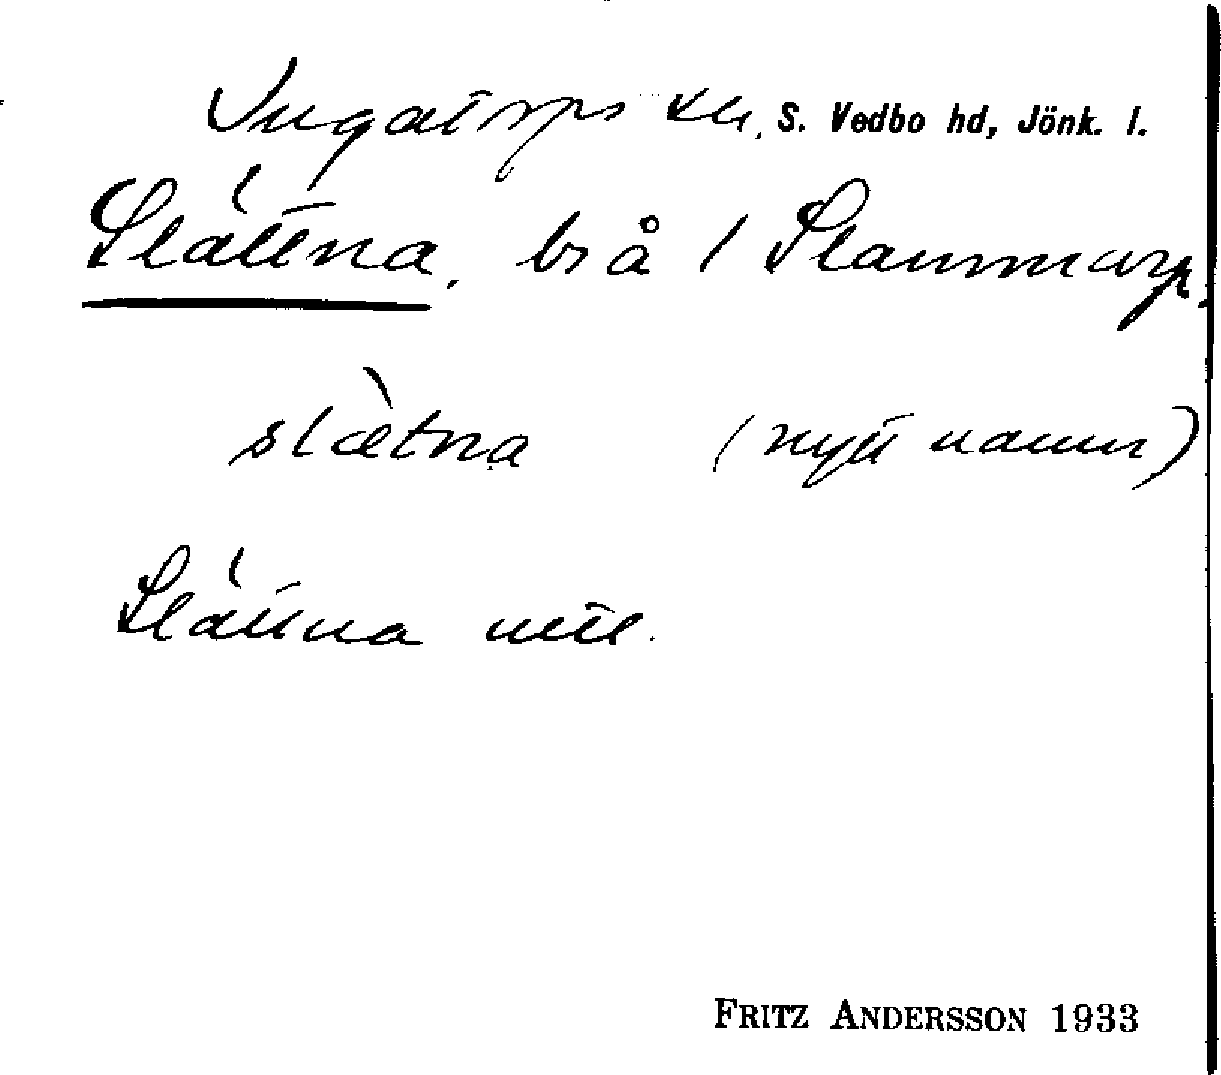 Ingatorps sn, S. Vedbo hd, Jönk. l.
Slättna, bs å / Slammarp.
slæ̀tna (nytt namn)
Slättna
FRITZ ANDERSSON 1933